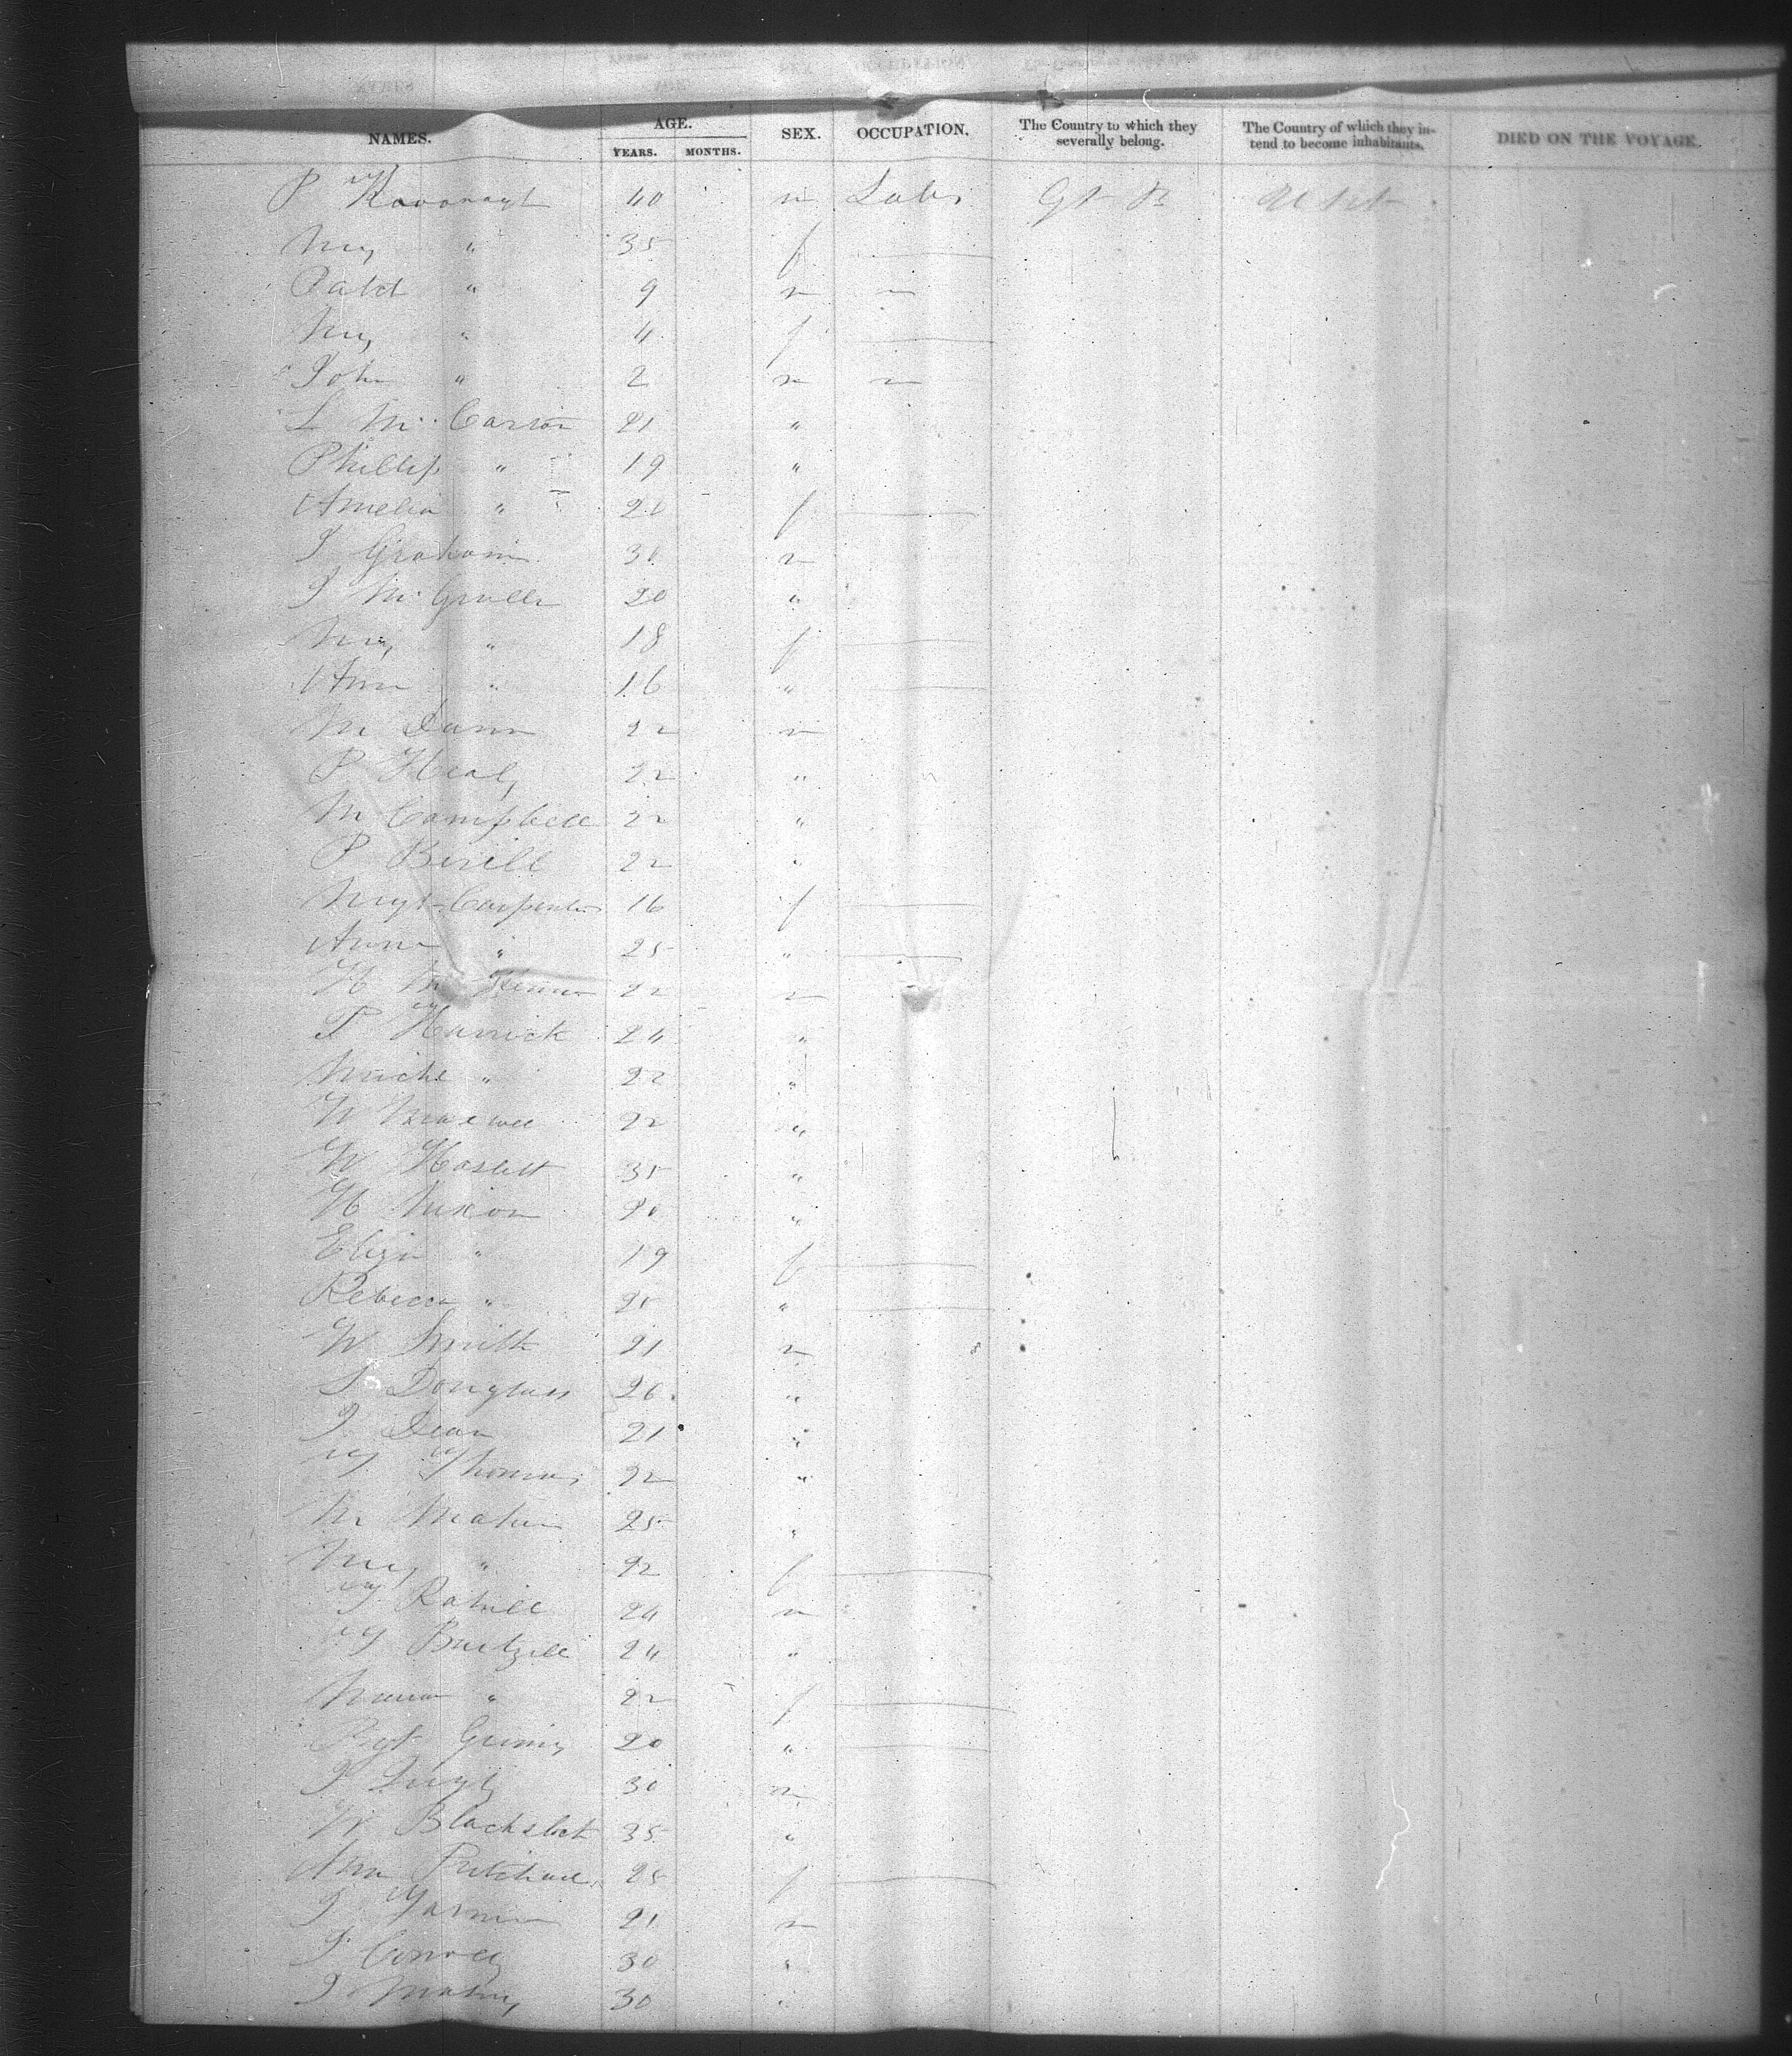 NAMES. AGE. YEARS. MONTHS. SEX. OCCUPATION. The Country to which they severally belong. The Country of which they intend to become inhabitants. DIED ON THE VOYAGE.
P Kavanagh 40 m Labr Gt B U Sts
Mry " 35 f
Patct " 9 m "
Mry " 4 f
John " 2 m "
L McCarron 21 "
Phillip " 19 "
Amelia " 20 f
J Graham 30 m
J McGruller 20 "
Mry " 18 f
Ann " 16 "
M Dunn 22 m
P Healy 22 "
M Campbell 22 "
P Birill 22 "
Mrgt Carpenter 16 f
Anne " 25 "
H McKenna 22 m
P Harrick 24 "
Michl " 22 "
W Maxwell 22 "
W Haslett 35 "
H Nixon 20 "
Eliza " 19 f
Rebecca " 25 "
W Smith 21 m
S Douglass 26 "
J Dean 21 "
Thomas 22 "
M Maher 25 "
Mry " 22 f
Rahill 24 m
24 "
" 22 f
Bgt Grimes 20 "
J Duyly 30 m
W Blackstock 35 "
Ann Pritchard 25 f
J 21 m
J Conroy 30 "
J 30 "